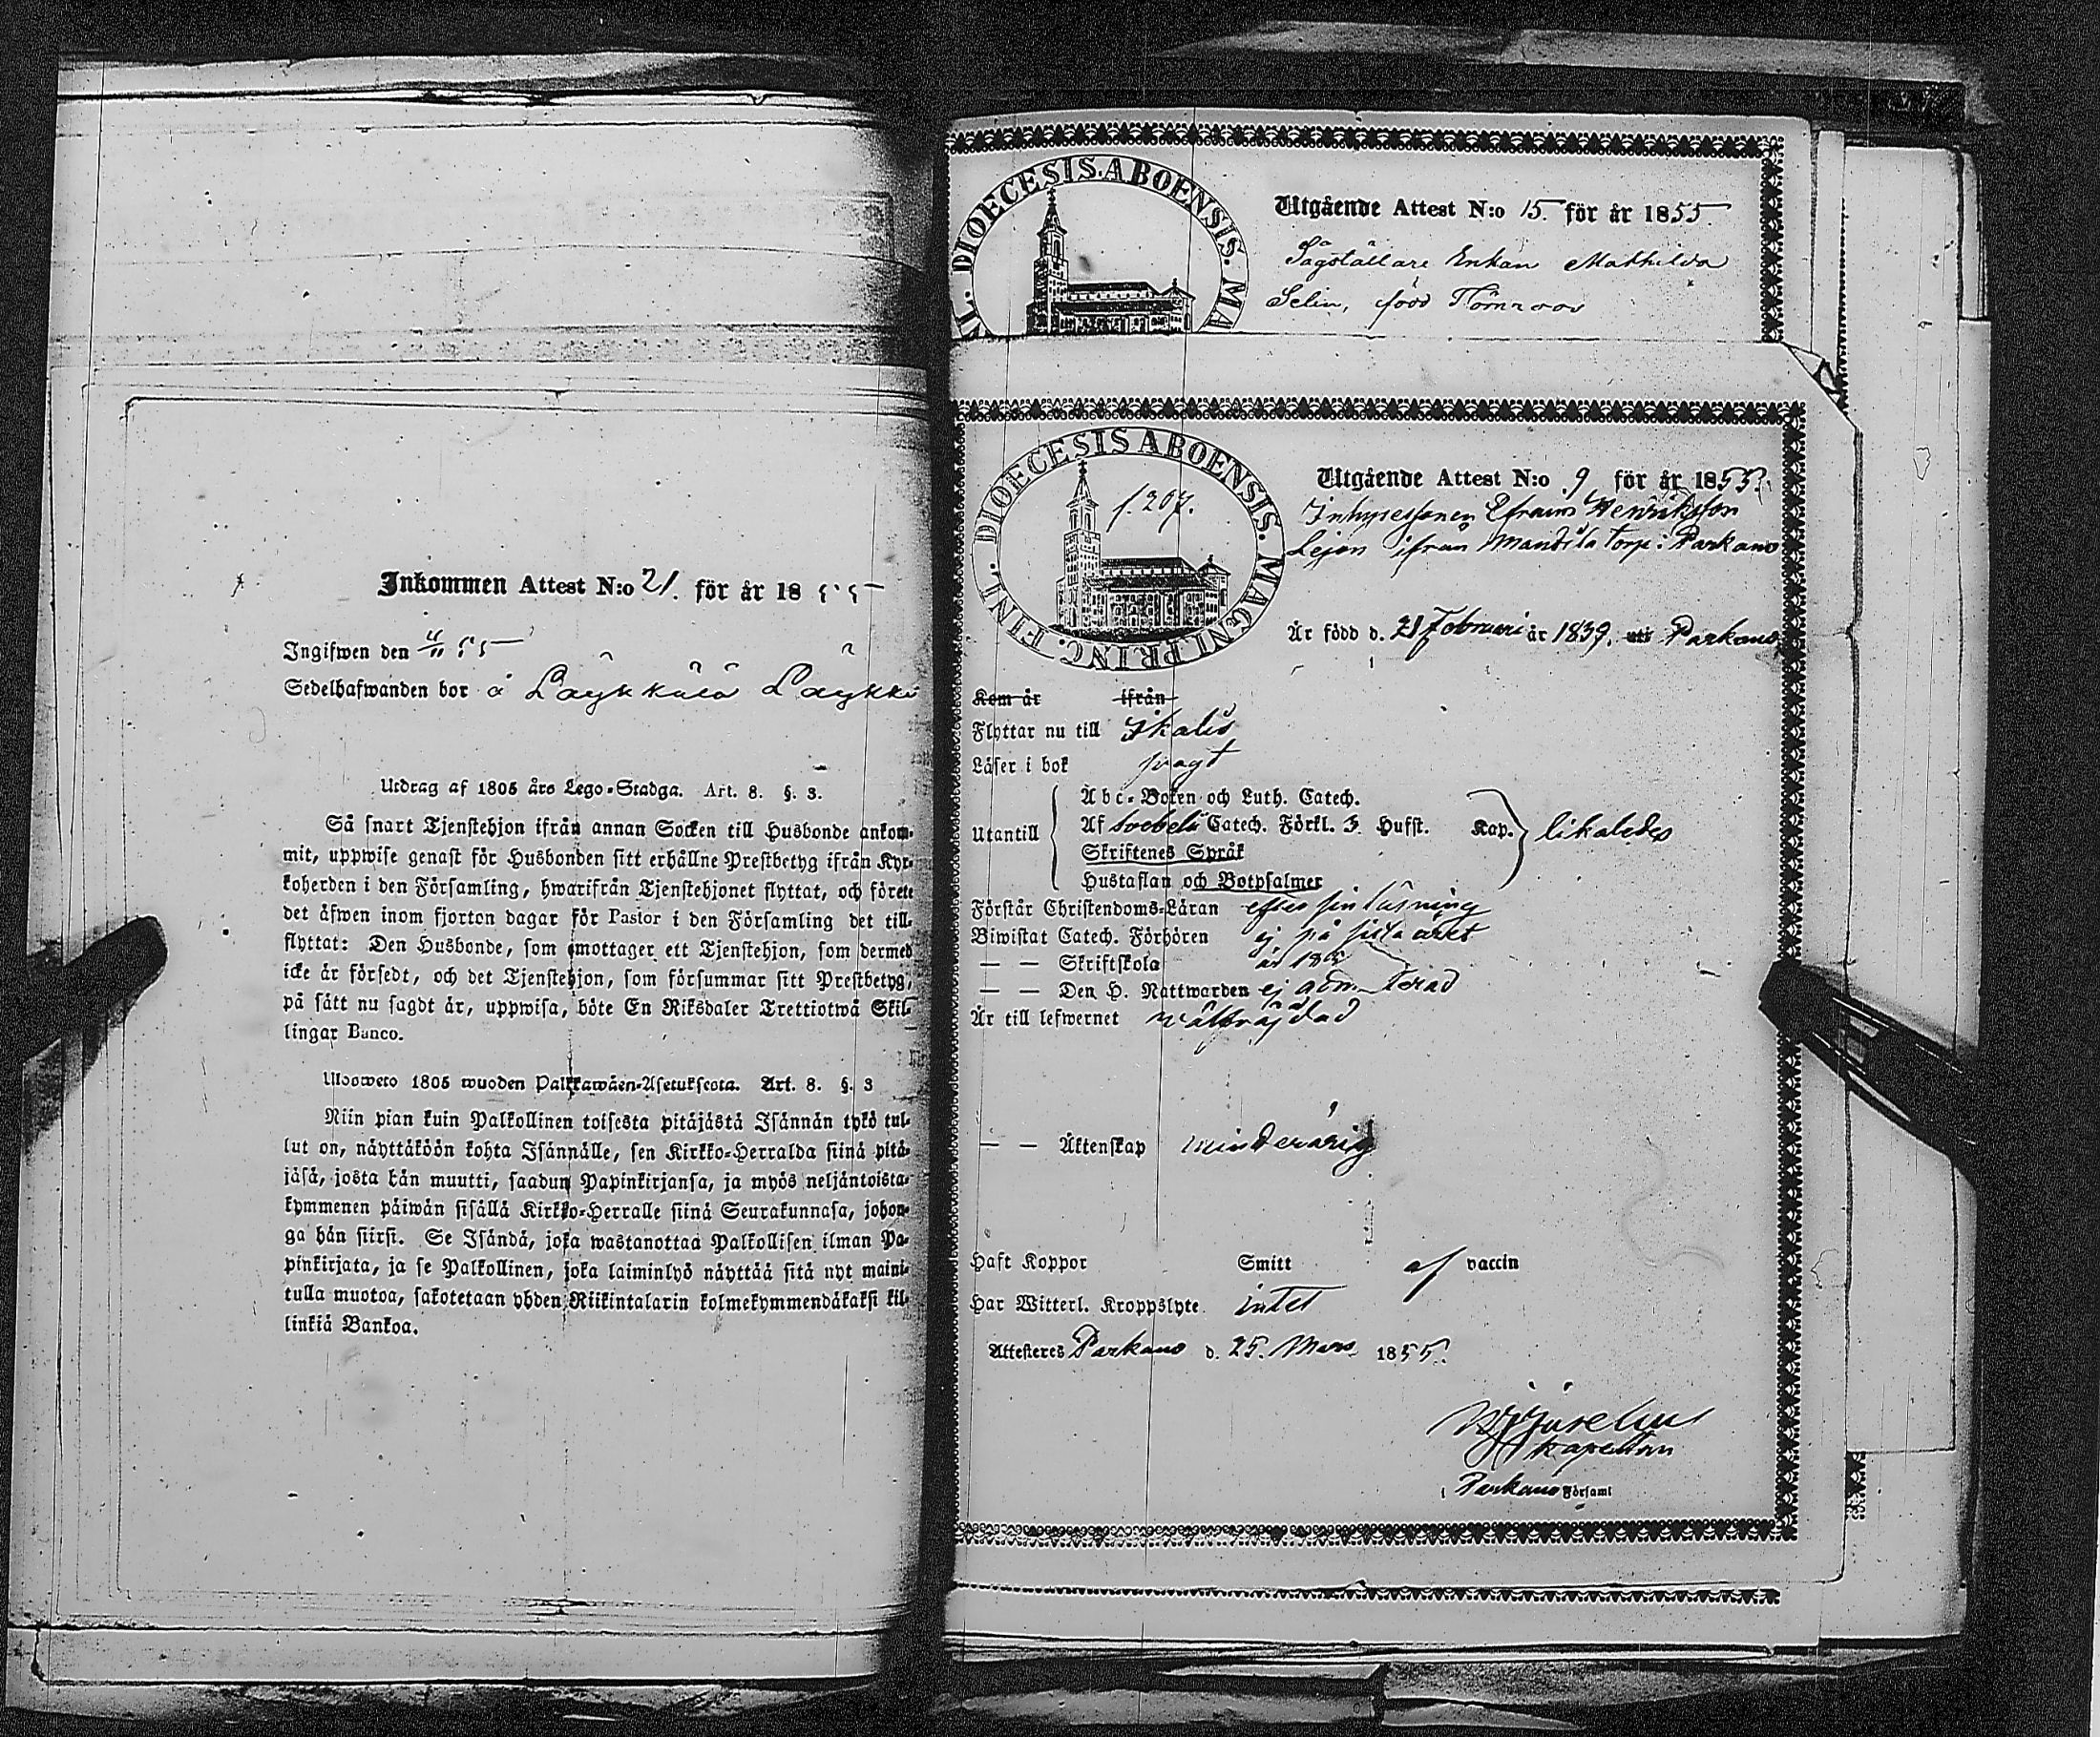 Inkommen Attest N:o 21. för år 1855
Ingifwen den 4/11 55
Sedelhafwanden bor å Läykkälä Läykki
Utdrag af 1805 års Lego-Stadga. Art. 8. §. 3.
Så snart Tjenstehjon ifrån annan Socken till Husbonde ankom-
mit, uppwise genast för Husbonden sitt erhållne Prestbetyg ifrån Kyr-
koherden i den Församling, hwarifrån Tjenstehjonet flyttat, och förete
det äfwen inom fjorton dagar för Pastor i den Församling det till-
flyttat: Den Husbonde, som emottager ett Tjenstehjon, som dermed
icke är försedt, och det Tjenstehjon, som försummar sitt Prestbetyg,
på sätt nu sagdt är, uppwisa, böte En Riksdaler Trettiotwå Skil-
lingar Banco.
Ulosweto 1805 wuoden Palkkawäen-Asetuksesta. Art. 8. §. 3
Niin pian kuin Palkollinen toisesta pitäjästä Isännän tykö tul-
lut on, näyttäköön kohta Isännälle, sen Kirkko-Herralda siinä pitä-
jäsä, josta hän muutti, saadun Papinkirjansa, ja myös neljäntoista-
kymmenen päiwän sisällä Kirkko-Herralle siinä Seurakunnasa, johon-
ga hän siirsi. Se Isändä, joka wastanottaa Palkollisen ilman Pa-
pinkirjata, ja se Palkollinen, joka laiminlyö näyttää sitä nyt maini-
tulla muotoa, sakotetaan yhden Riikintalarin kolmekymmendäkaksi kil-
linkiä Bankoa.
DIOECESIS ABOENSIS. MA
Utgående Attest N:o 15. för år 1855
Enkan Mathilda
Selin, född Törnroos
DIOECESIS ABOENSIS. MAGNI PRINC. FINL.
f. 207.
Utgående Attest N:o 9 för år 1855.
Inhysessonen Efraim Henriksson
Lejon ifrån Mandila torp i Parkano
Är född d. 21 Februari år 1839. uti Parkano
Kom år ifrån
Flyttar nu till Ikalis
Läser i bok swagt
Utantill
Abc-Boken och Luth. Catech.
Af Svebelii Catech. Förkl. 3. Hufst. Kap. likaledes
Skriftenes Språk
Hustaflan och Botpsalmer
Förstår Christendoms-Läran efter sin läsning
Biwistat Catech. Förhören ej på sista året
— — Skriftskola år 185
— — Den H. Nattwarden ej adm-terad
Är till lefwernet wälfräjdad
— — Äktenskap minderårig
Haft Koppor Smitt af vaccin
Har Witterl. Kroppslyte intet
Attesteres Parkano d. 25. Mars 1855.
kapellan
i Parkano Församl